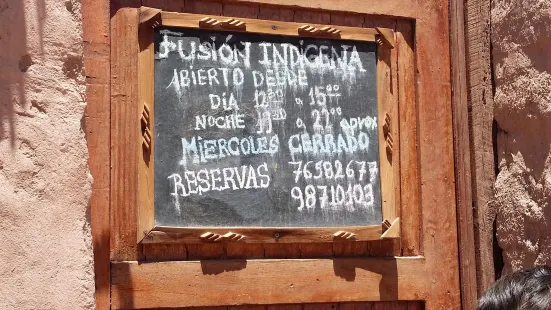 FUSIÓN INDIGENA
ABIERTO DESDE
DIA 12:30 a 15:00
NOCHE a aprox
MIERCOLES CERRADO
RESERVAS 76582677
98710103